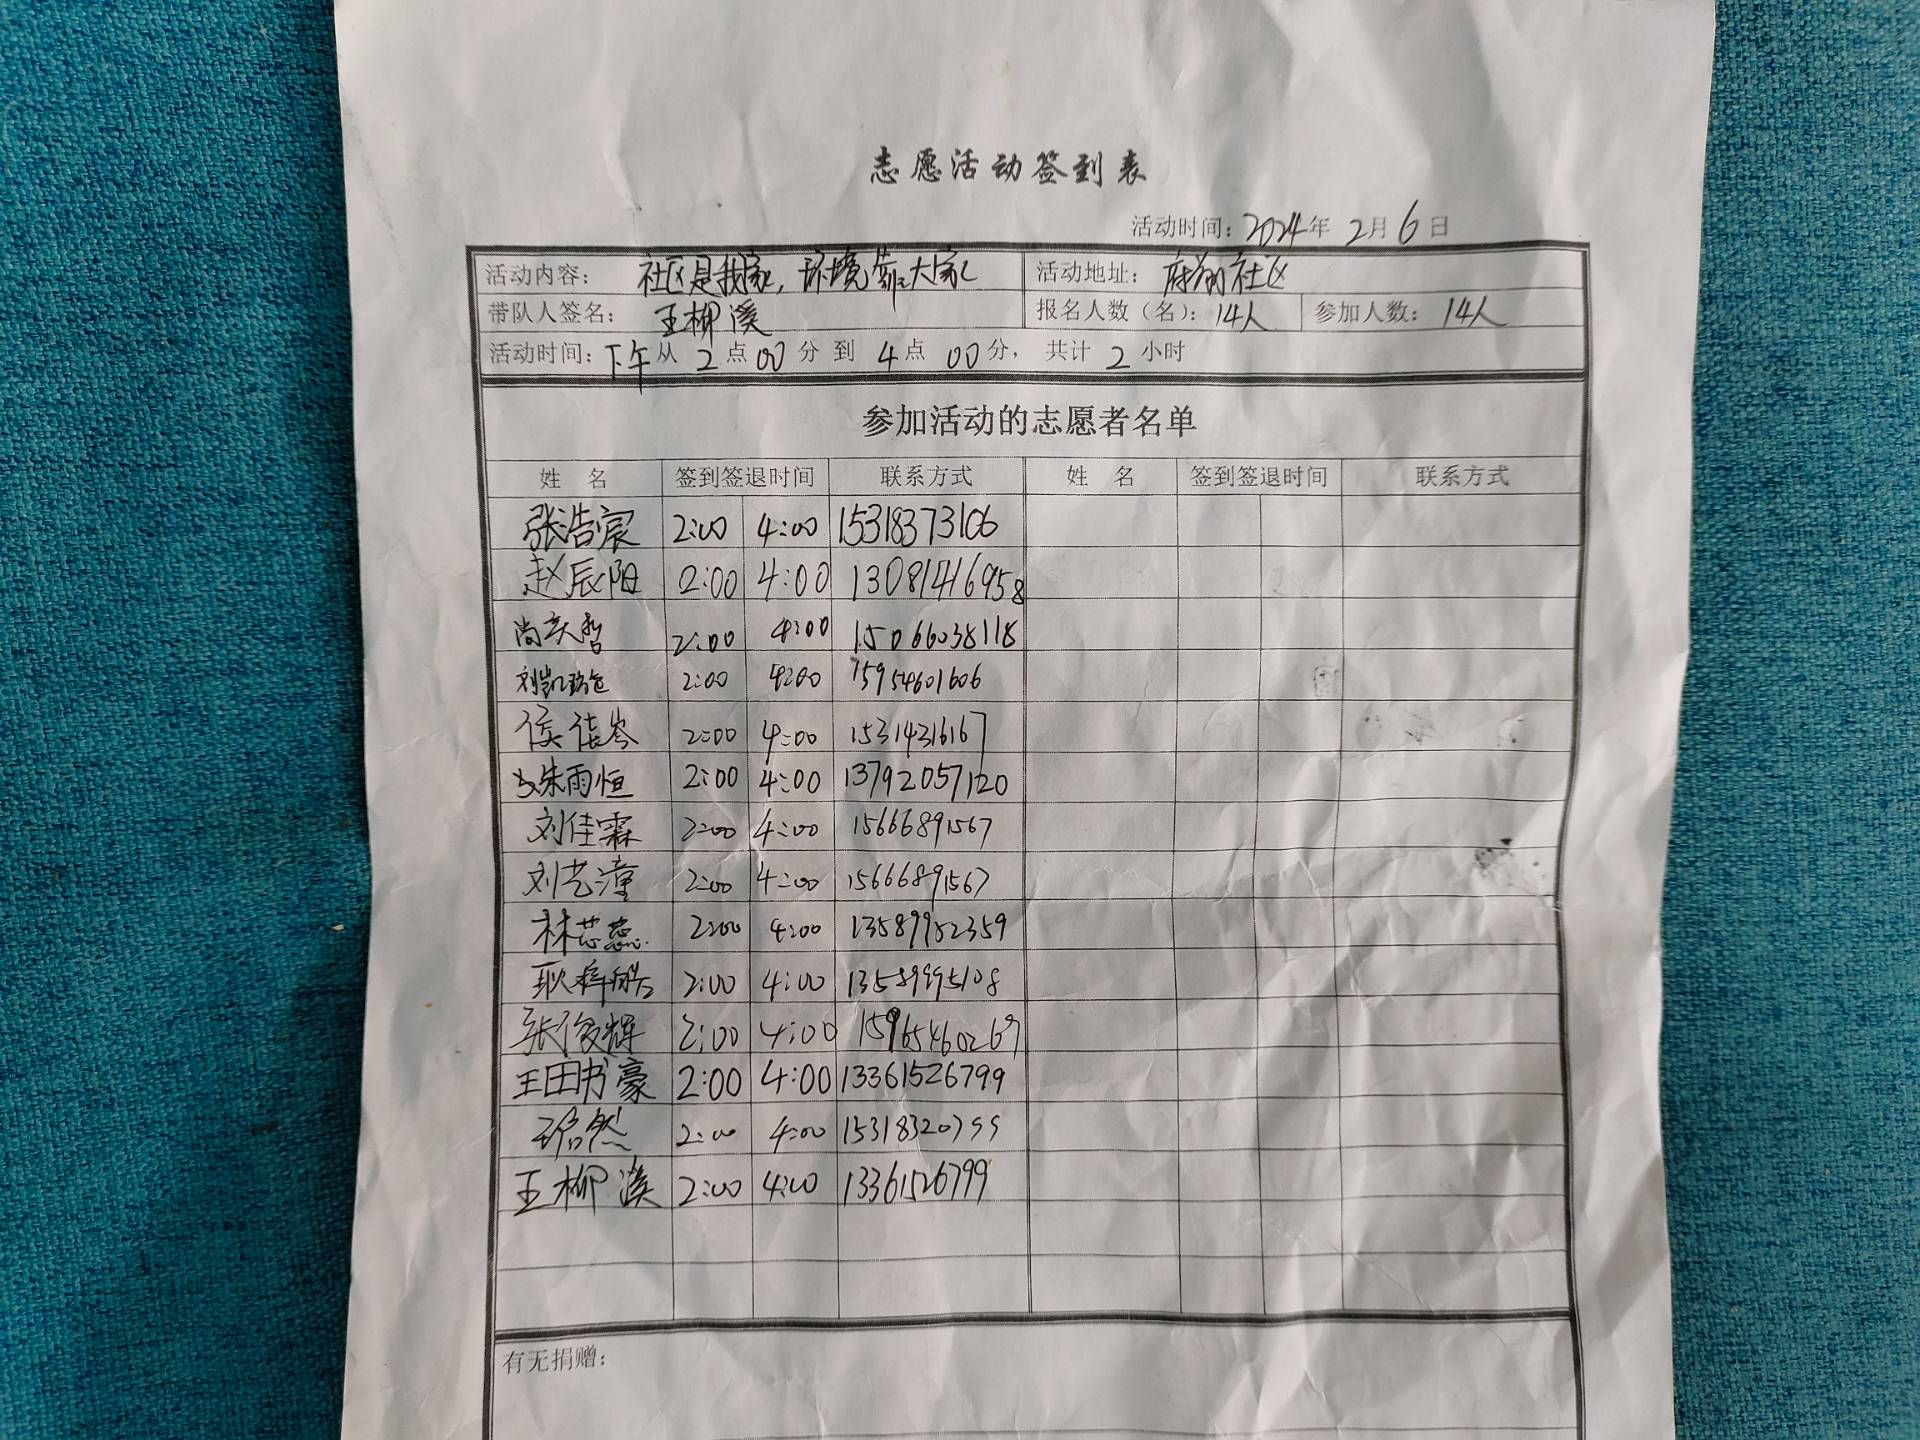 志愿活动签到表
活动时间：2024年 2月 6日
活动内容： 社区是我家，环境靠大家 活动地址： 府翔社区
带队人签名： 王柳溪 报名人数（名）：14人 参加人数： 14人
活动时间：下午从 2点00分到 4点 00分， 共计 2 小时
参加活动的志愿者名单
姓 名 签到签退时间 联系方式 姓 名 签到签退时间 联系方式
张浩宸 2:00 4:00 15318373106
赵辰阳 2:00 4:00 13081416958
尚奕哲 2:00 4:00 15066038118
刘凯 2:00 4:00 15954601606
侯 岑 2:00 4:00 15314231617
朱雨恒 2:00 4:00 13792057120
刘佳霖 2:00 4:00 15666891567
刘艺潼 2:00 4:00 15666891567
林芯蕊 2:00 4:00 13589952359
耿梓 2:00 4:00 13589995108
张俊辉 2:00 4:00 15965460269
王田书豪 2:00 4:00 13361526799
然 2:00 4:00 15318320799
王柳溪 2:00 4:00 13361526799
有无捐赠：